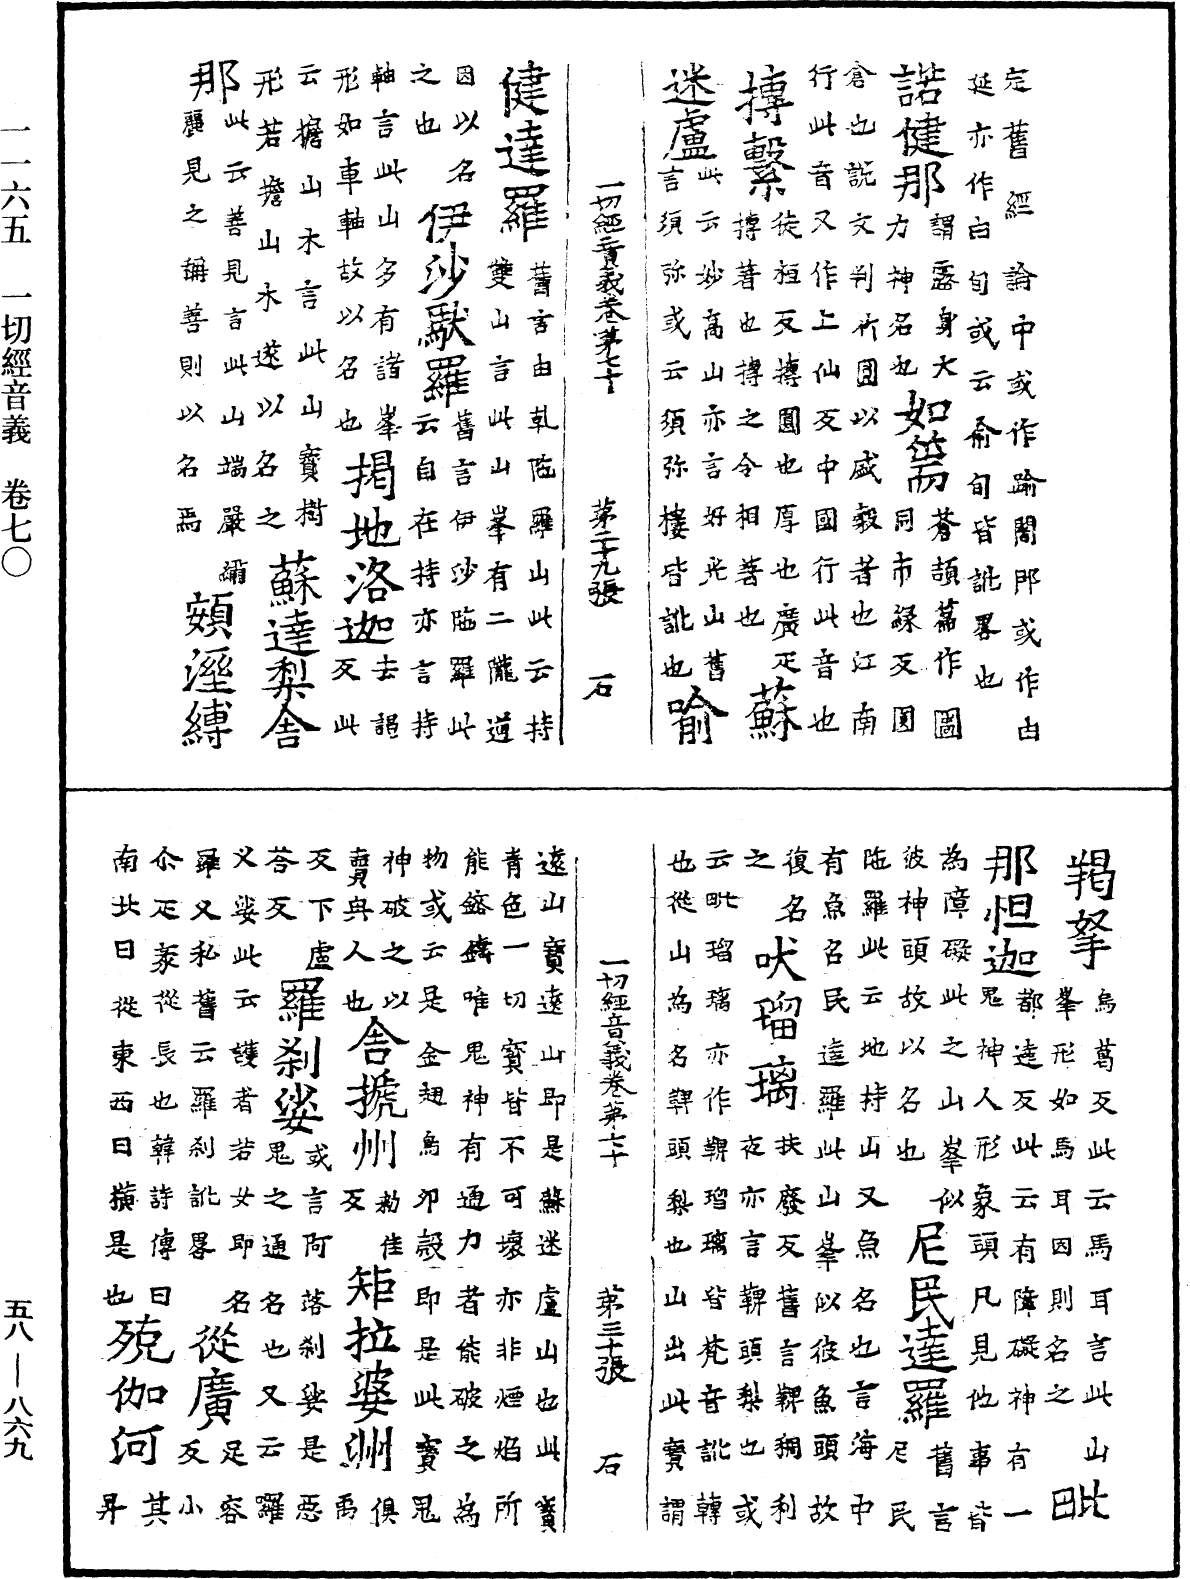 一一六五　一切經音義　卷七〇
五八—八六九
定舊經論中或作踰闍那或作由
延亦作由旬或云俞旬皆訛畧也
諾健那謂露身大力神名也如篅蒼頡篇作圌同市緣反圓
倉也說文判竹圓以盛穀者也江南
行此音又作上仙反中國行此音也
摶繫徒桓反摶圓也厚也廣疋摶著也摶之令相著也蘇
迷盧此云妙高山亦言好光山舊言須弥或云須弥樓皆訛也喻
一切經音義卷第七十　第二十九張　石
健達羅舊言由乹陁羅山此云持雙山言此山峯有二隴道
因以名之也伊沙馱羅舊言伊沙陁羅此云自在持亦言持
軸言此山多有諸峯形如車軸故以名也朅地洛迦去謁反此
云擔山木言此山寶樹形若擔山木遂以名之蘇達梨舍
那此云善見言此山端嚴繡麗見之稱善則以名焉頞溼縛
羯拏烏葛反此云馬耳言此山峯形如馬耳因則名之毗
那怛迦都達反此云有障礙神有一鬼神人形象頭凡見他事皆
為障礙此之山峯似彼神頭故以名也尼民達羅舊言尼民
陁羅此云地持山又魚名也言海中有魚名民達羅此山峯似彼魚頭故
復名之吠瑠璃扶廢反舊言鞞稠利夜亦言鞞頭梨也或
云毗瑠璃亦作鞞瑠璃皆梵音訛轉也從山為名鞞頭梨也山出此寶謂
一切經音義卷第七十　第三十張　石
遠山寶遠山即是蘇迷盧山也此寶青色一切寶皆不可壞亦非煙焰所
能鎔鑄唯鬼神有通力者能破之為物或云是金翅鳥卵殼即是此寶鬼
神破之以賣與人也舍搋州勑佳反矩拉婆洲俱禹
反下盧荅反羅剎娑或言阿落剎娑是惡鬼之通名也又云囉
义娑此云護者若女即名羅义私舊云羅剎訛畧從廣足容反小
尒疋袤從長也韓詩傳曰南北曰從東西曰橫是也殑伽河其昇